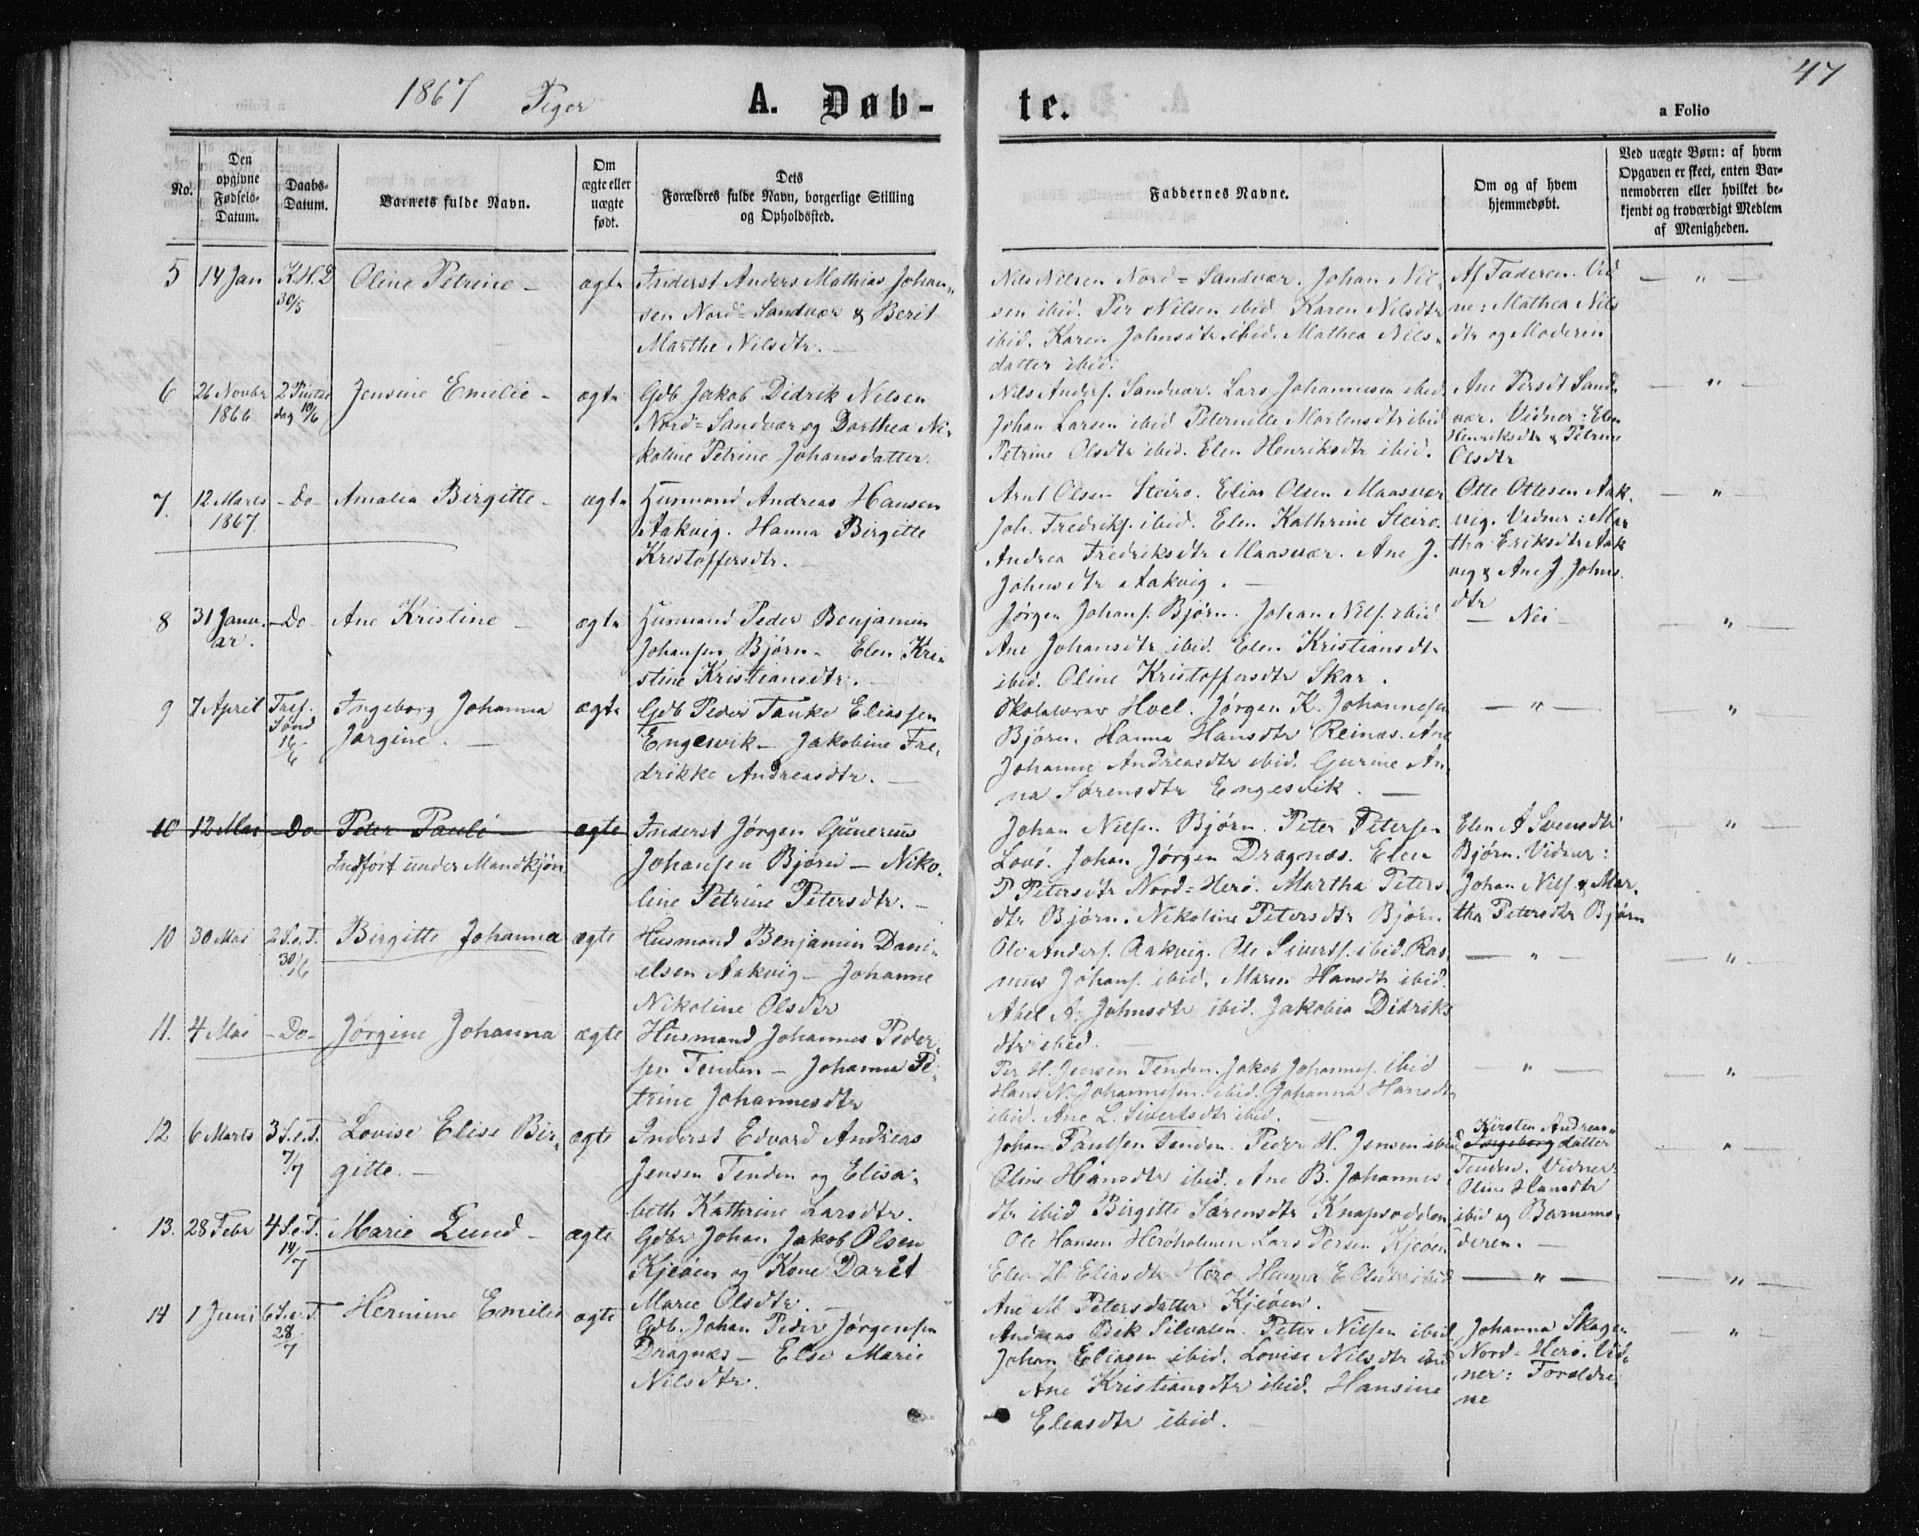 1867 Piger A. Døb-
te.
47
a Folio
No.
Den opgivne Fødsels-Datum.
Daabs-Datum.
Barnets fulde Navn.
Om ægte eller uægte født.
Dets Forældres fulde Navn, borgerlige Stilling og Opholdssted.
Faddernes Navne.
Om og af hvem hjemmedøbt.
Ved uægte Børn: af hvem Opgaven er skeet, enten Barnemoderen eller hvilket bekjendt og troværdigt Medlem af Menigheden.
5 14 Jan K.H.D 30/5 Oline Petrine - ægte
Inderst Anders Mathias Johan-
sen Nord=Sandvær & Berit
Marthe Nilsdtr. -
Nils Nilsen Nord=Sandvær. Johan Nil-
sen ibid. Per Nilsen ibid. Karen Nilsdtr
ibid. Karen Johnsdtr ibid. Mathea Nils-
datter ibid.
Af Faderen. Vid
ne: Mathea Nils
dtr og Moderen
- " -
6 26 Novbr 1866 2 Pintse dag 10/6 Jensine Emelie - ægte
Gdb Jakob Didrik Nilsen
Nord=Sandvær og Dorthea Ni-
koline Petrine Johansdatter.
Nils Anders. Sandvær. Lars Johannesen ibid
Johan Larsen ibid. Peternille Mortensdtr ibid
Petrine Olsdtr ibid. Elen Henriksdtr ibid.
Ane Persdt Sand-
vær. Vidner: Elen
Henriksdtr & Petrine
Olsdtr
- " -
7. 12 Marts 1867. - Do - Amalia Birgitte - ægte
Husmand Andreas Hansen
Aakvig. Hanna Birgitte
Kristoffersdtr. -
Arnt Olsen Steiro. Elias Olsen Maasvær
Joh. Fredriks. ibid. Elen Kathrine Steiro.
Andrea Fredriksdtr Maasvær. Ane J.
Johnsdtr Aakvig. -
Otte Ottesen Aak.
vig. Vidner: Mar
tha Eriksdtr Aak
vig & Ane J Johns.
dtr
- " -
8 31 Janu. ar. - Do - Ane Kristine - ægte
Husmand Peder Benjamin
Johansen Bjørn - Elen Kri-
stine Kristiansdtr. -
Jørgen Johans. Bjørn. Johan Nils. ibid
Ane Johansdtr ibid. Elen Kristiansdtr
ibid. Oline Kristoffersdtr Skar.
- Nei -
- " -
9 7 April Tref. Sønd 16/6 Ingeborg Johanna
Jørgine. - ægte
Gdb Peder Tanke Eliassen
Engesvik - Jakobine Fre-
drikke Andreasdtr. -
Skolelærer Hoel. Jørgen K. Johannesen
Bjørn. Hanna Hansdtr Reinæs. Ane
Johanne Andreasdtr ibid. Gurine An-
na Sørensdtr Engesvik. -
- " -
"
10 12 Mai Do Peter Paulo ægte
Indført under Mandkjøn
Inderst Jørgen Gunerius
Johansen Bjørn - Niko-
line Petrine Petersdtr. -
Johan Nilsen Bjørn. Peter Petersen
Lovø. Johan Jørgen Dragnæs. Elen
P Petersdtr Nord=Herø. Martha Peters-
dtr Bjørn. Nikoline Petersdtr Bjørn.
Elen A Svensdtr
Bjørn. Vidner:
Johan Nils. & Mar.
tha Petersdtr Bjørn
- " -
10 30 Mai 2 S.e.T. 30/6 Birgitte Johanna ægte
Husmand Benjamin Dani-
elsen Aakvig - Johanne
Nikoline Olsdtr
Ole Anders. Aakvig. Ole Siverts. ibid. Ras
mus Johans. ibid. Maren Hansdtr ibid.
Abel A. Johnsdtr ibid. Jakobia Didriks
dtr ibid. -
- " -
- " -
11. 4 Mai - Do - Jørgine Johanna ægte
Husmand Johannes Peder-
sen Tenden - Johanna Pe-
trine Johannesdtr
Per H. Jensen Tenden. Jakob Johannes. ibid
Hans N. Johannesen ibid. Johanna Hansdtr
ibid. Ane L. Sivertsdtr ibid. -
- " -
"
12 6 Marts 3 S.e.T. 7/7 Lovise Elise Bir-
gitte. - ægte
Inderst Edvard Andreas
Jensen Tenden og Elisa-
beth Kathrine Larsdtr.
Johan Paulsen Tenden. Peder H. Jensen ibid.
Oline Hansdtr ibid. Ane B. Johannes
dtr ibid Birgitte Sørensdtr Knapsodden.
Kirsten Andreas-
Ingeborg datter
Tenden. Vidner:
Oline Hansdtr
ibid og Barnemo-
deren. -
"
13. 28 Febr 4 S.e.T. 14/7 Marie Lund - ægte
Gdbr Johan Jakob Olsen
Kjeøen og Kone Dorit
Marie Olsdtr.
Ole Hansen Herøholmen Lars Persen Kjeøen
Elen H Eliasdtr Herø Hanna E Olsdtr ibid
Ane M. Petersdatter Kjeøen. -
- " -
- " -
14 1 Juni 6 S.e.T. 28/7 Hermine Emilie ægte
Gdb. Johan Peder Jørgensen
Dragnæs - Else Marie
Nilsdtr.
Andreas Bek Silvalen. Peter Nilsen ibid.
Johan Eliasen ibid. Lovise Nilsdtr ibid
Ane Kristiansdtr ibid. Hansine
Eliasdtr ibid. -
Johanna Skagen
Nord=Herø. Vid-
ner: Forældre-
ne
- " -